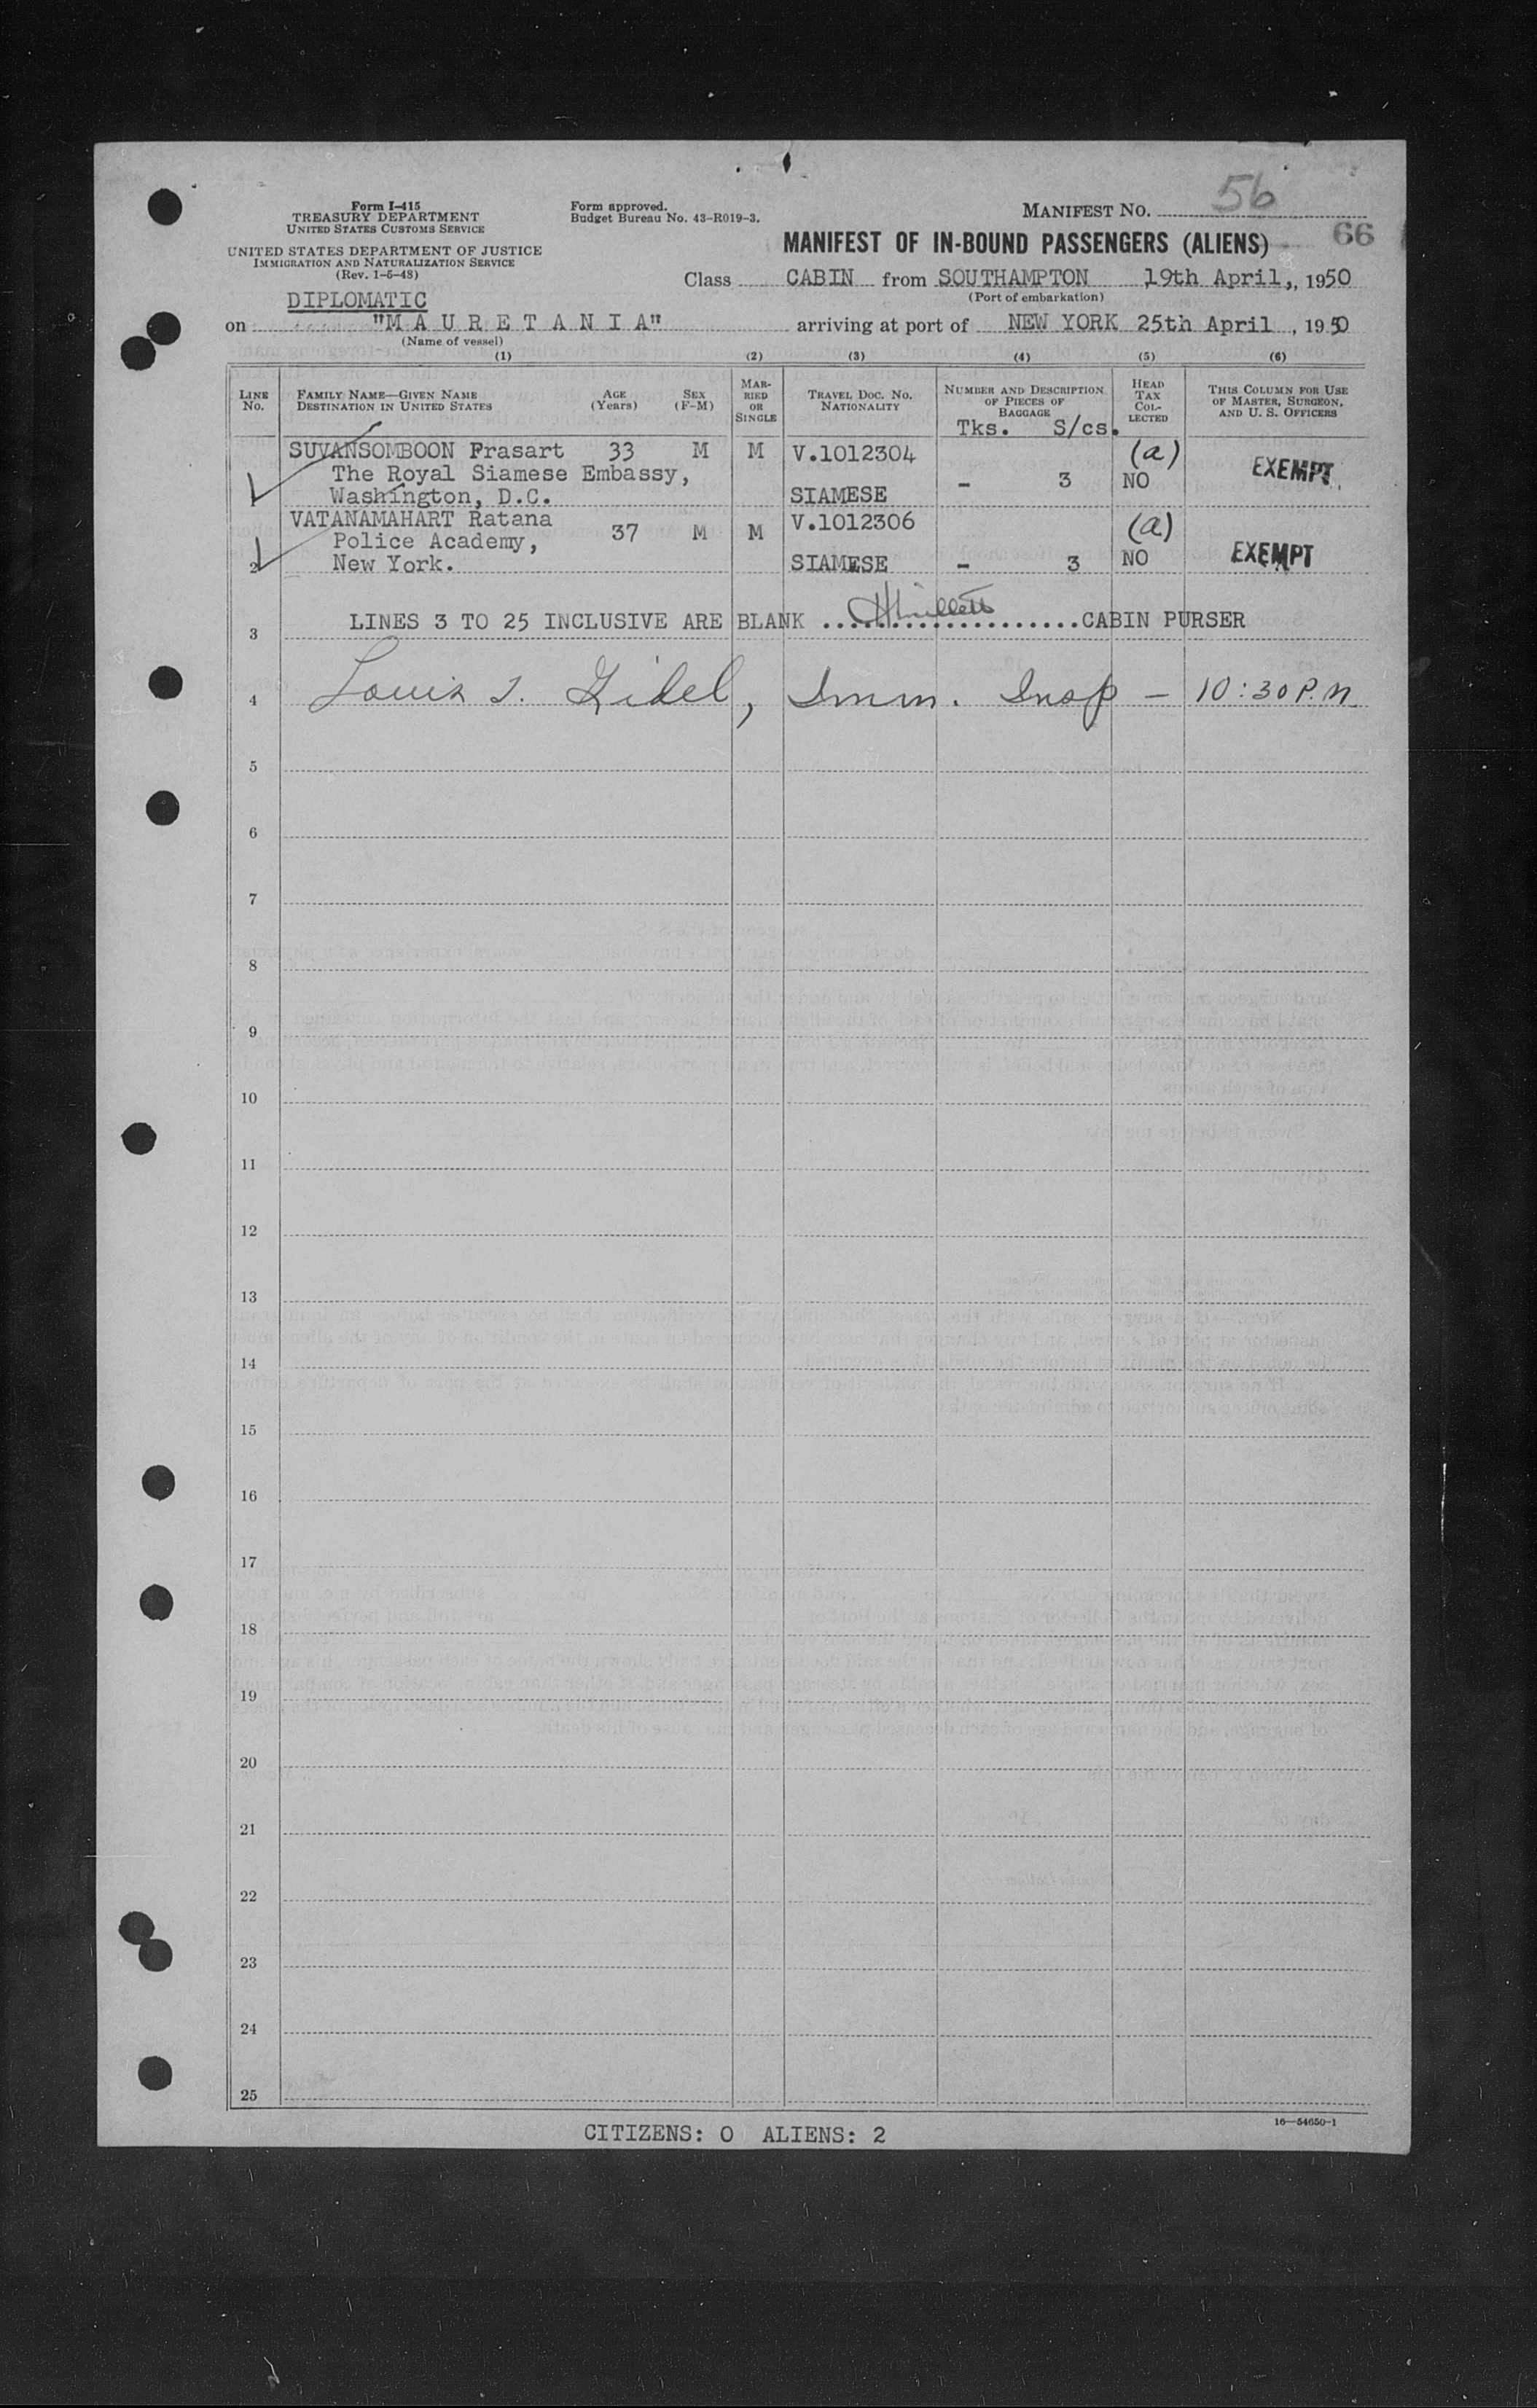 56
Form I-415
TREASURY DEPARTMENT
UNITED STATES CUSTOMS SERVICE
UNITED STATES DEPARTMENT OF JUSTICE
IMMIGRATION AND NATURALIZATION SERVICE
(Rev. 1-5-48)
Form approved.
Budget Bureau No. 43-R019-3.
MANIFEST NO.
MANIFEST OF IN-BOUND PASSENGERS (ALIENS)
66
Class CABIN from SOUTHAMPTON 19th April, , 1950
(Port of embarkation)
DIPLOMATIC
on "M A U R E T A N I A" arriving at port of NEW YORK 25th April , 1950
(Name of vessel)
(1) (2) (3) (4) (5) (6)
LINE No.
FAMILY NAME—GIVEN NAME
DESTINATION IN UNITED STATES
AGE (Years)
SEX (F-M)
MAR-RIED OR SINGLE
TRAVEL DOC. NO. NATIONALITY
NUMBER AND DESCRIPTION OF PIECES OF BAGGAGE
Tks. S/cs.
HEAD TAX COL-LECTED
THIS COLUMN FOR USE OF MASTER, SURGEON, AND U. S. OFFICERS
SUVANSOMBOON Prasart 33 M M V.1012304 (a)
The Royal Siamese Embassy, - 3 NO EXEMPT
Washington, D.C. SIAMESE
VATANAMAHART Ratana 37 M M V.1012306 (a)
Police Academy,
2 New York. SIAMESE - 3 NO EXEMPT
3 LINES 3 TO 25 INCLUSIVE ARE BLANK ....................CABIN PURSER
4 Louis Gidel, Imm. Insp - 10:30 P.M.
5
6
7
8
9
10
11
12
13
14
15
16
17
18
19
20
21
22
23
24
25
16—54650-1
CITIZENS: 0 ALIENS: 2